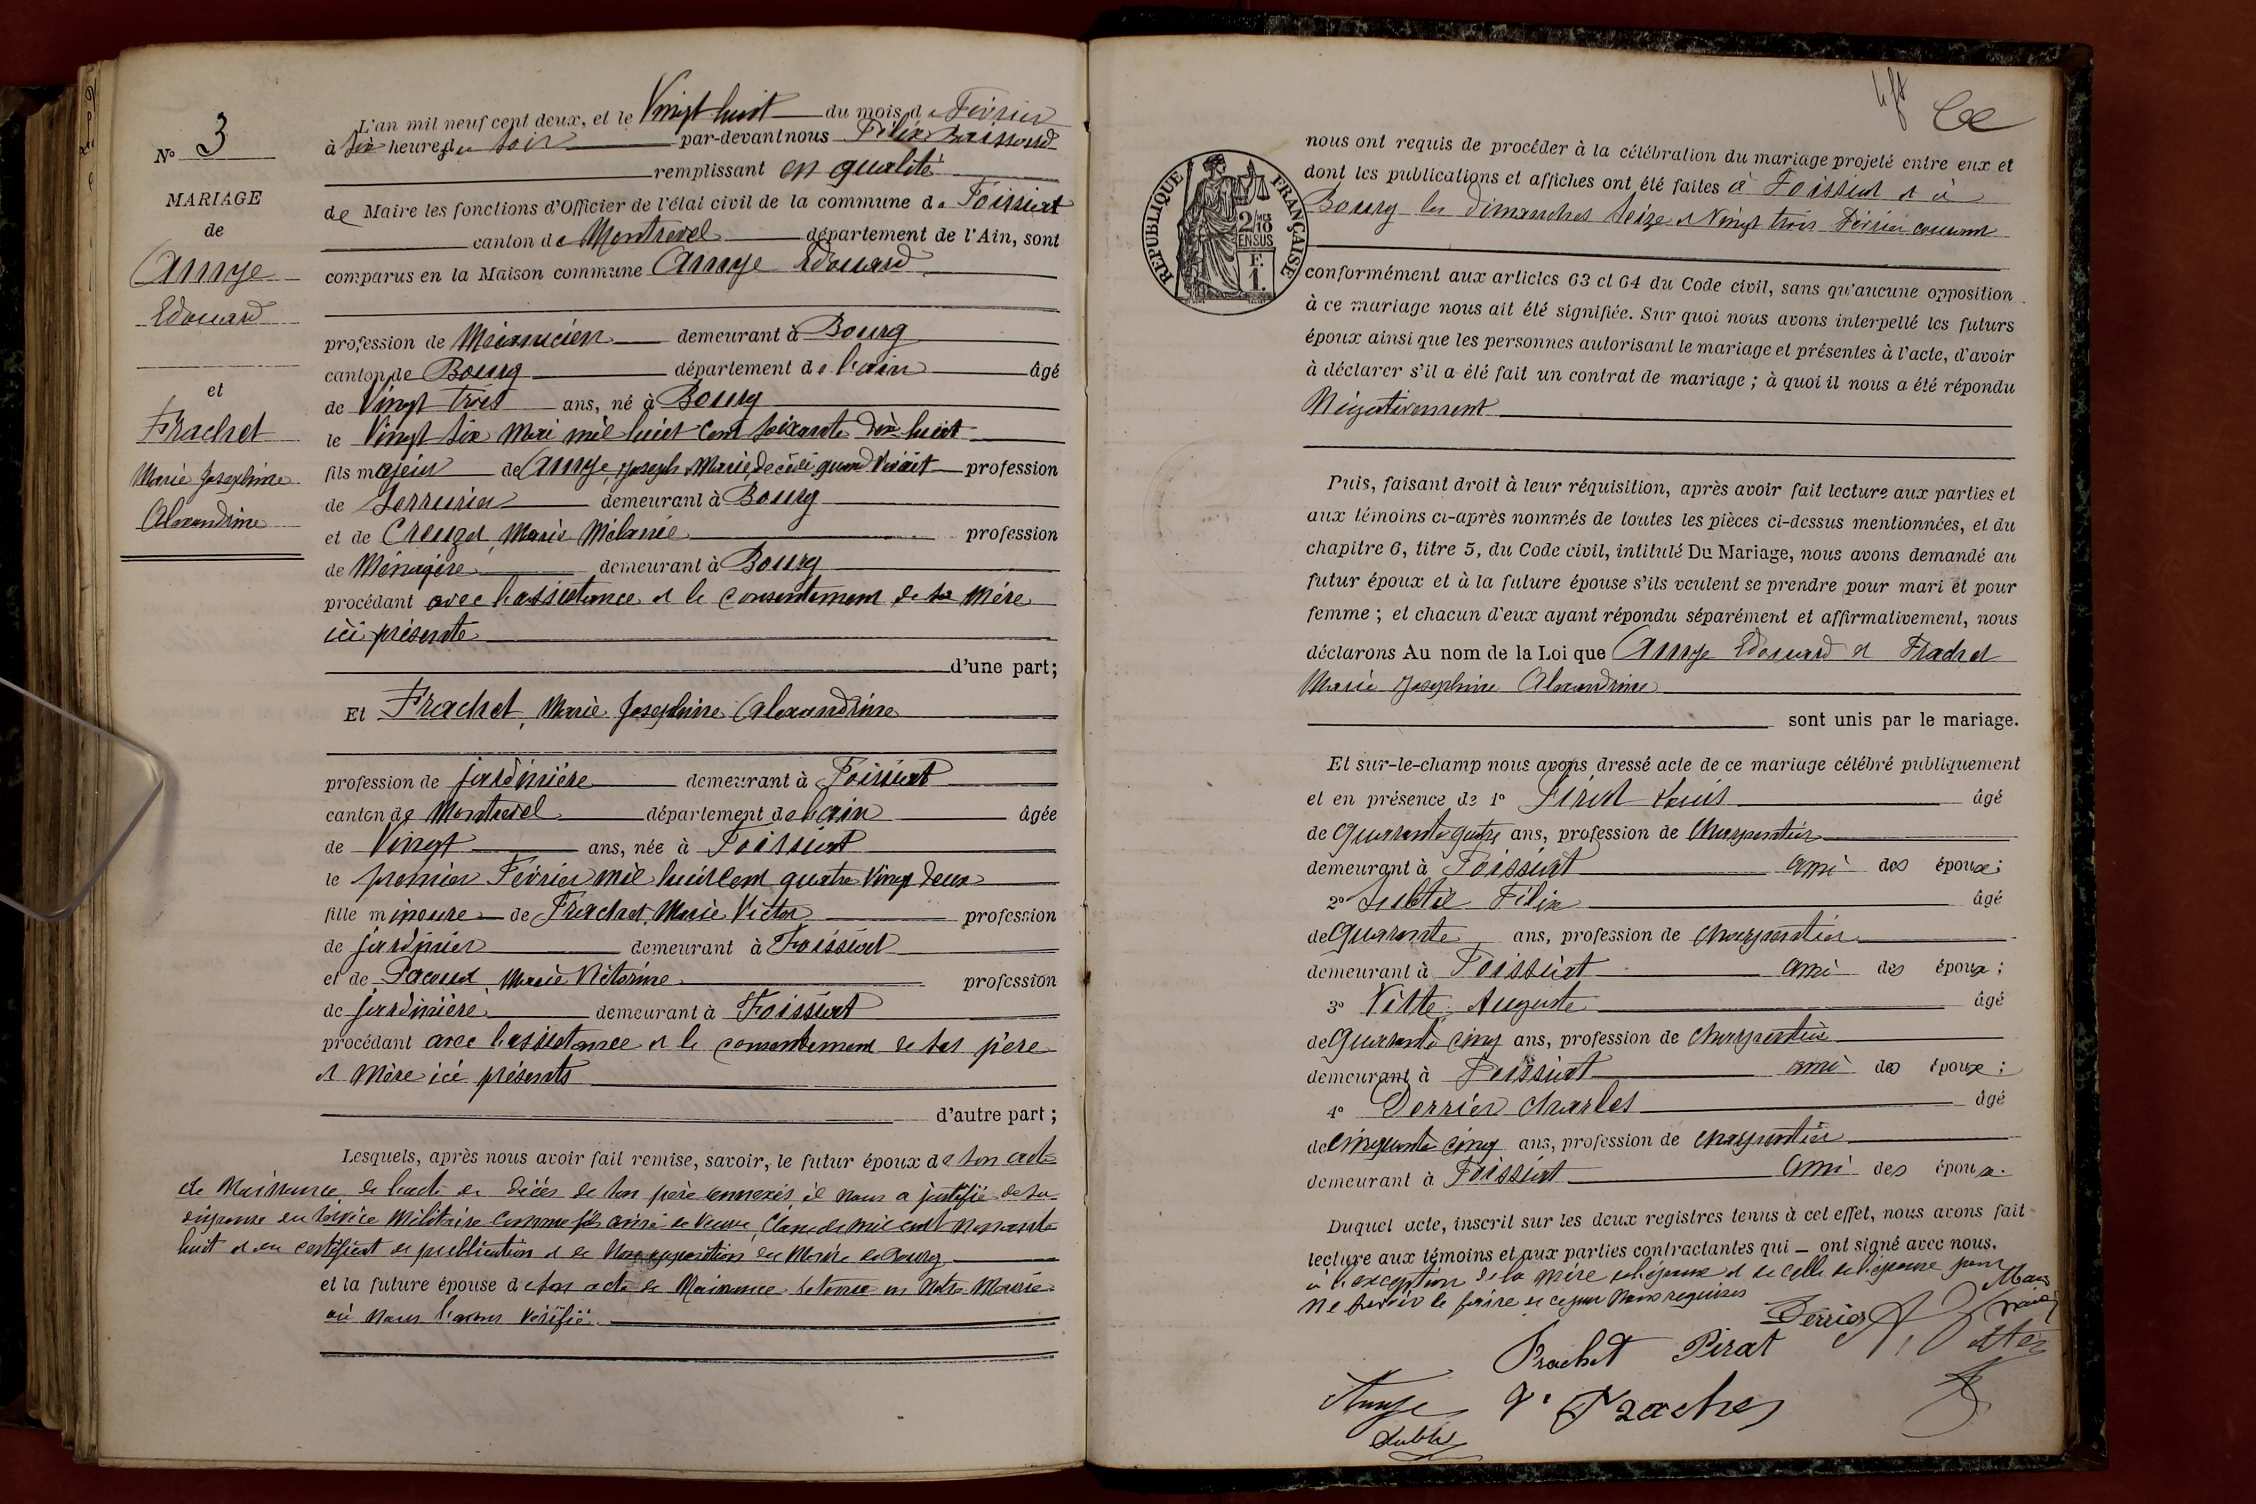 N° 3
MARIAGE
de
Amye
Edouard
et
Frachet
Marie Josephine
Alexandrine
L'an mil neuf cent deux, et le Vingt huit du mois de Février
à six heures du soir par-devant nous Félix
remplissant en qualité
de Maire les fonctions d'Officier de l'état civil de la commune de Foissiat
canton de Montrevel département de l'Ain, sont
comparus en la Maison commune Amye Edouard
profession de Mécanicien demeurant à Bourg
canton de Bourg département de l'ain âgé
de Vingt trois ans, né à Bourg
le Vingt six Mai mil huit cent soixante dix huit
fils majeur de Amye, Joseph Marie, décédé quand vivait profession
de Serrurier demeurant à Bourg
et de Creuzet, Marie Mélanie profession
de Ménagère demeurant à Bourg
procédant avec l'assistance et le consentement de sa Mère
ici présente
d'une part;
Et Frachet, Marie Josephine Alexandrine
profession de jardinière demeurant à Foissiat
canton de Montrevel département de l'ain âgée
de Vingt ans, née à Foissiat
le premier Février mil huit cent quatre Vingt deux
fille mineure de Frachet, Marie Victor profession
de jardinier demeurant à Foissiat
et de Pacoud Marie Victorine profession
de jardinière demeurant à Foissiat
procédant avec l'assistance et le consentement de ses père
et Mère ici présents
d'autre part;
Lesquels, après nous avoir fait remise, savoir, le futur époux de son acte
de Naissance, de l'acte de décès de son père annexés il nous a justifié de sa
dispense du service Militaire comme fils aîné de Veuve, Classe de mil cent Nonante
huit et du certificat de publication et de Non opposition du Maire de Bourg
et la future épouse de son acte de Naissance detenue en Notre Mairie
où nous l'avons Vérifié.
nous ont requis de procéder à la célébration du mariage projeté entre eux et
dont les publications et affiches ont été faites à Foissiat et à
Bourg les dimanches Seize et Vingt trois Février courant
RÉPUBLIQUE FRANÇAISE
2/10
EN SUS
F.
1.
conformément aux articles 63 et 64 du Code civil, sans qu'aucune opposition
à ce mariage nous ait été signifiée. Sur quoi nous avons interpellé les futurs
époux ainsi que les personnes autorisant le mariage et présentes à l'acte, d'avoir
à déclarer s'il a été fait un contrat de mariage; à quoi il nous a été répondu
Négativement
Puis, faisant droit à leur réquisition, après avoir fait lecture aux parties et
aux témoins ci-après nommés de toutes les pièces ci-dessus mentionnées, et du
chapitre 6, titre 5, du Code civil, intitulé Du Mariage, nous avons demandé au
futur époux et à la future épouse s'ils veulent se prendre pour mari et pour
femme; et chacun d'eux ayant répondu séparément et affirmativement, nous
déclarons Au nom de la Loi que Amye Edouard et Frachet
Marie Josephine Alexandrine
sont unis par le mariage.
Et sur-le-champ nous avons dressé acte de ce mariage célébré publiquement
et en présence de 1° Pirat Louis âgé
de quarante quatre ans, profession de Charpentier
demeurant à Foissiat ami des époux;
2° Subtil Félix âgé
de quarante ans, profession de charpentier
demeurant à Foissiat ami des époux;
3° Vitte Auguste âgé
de quarante cinq ans, profession de charpentier
demeurant à Foissiat ami des époux;
4° Derrier Charles âgé
de cinquante cinq ans, profession de charpentier
demeurant à Foissiat ami des époux.
Duquel acte, inscrit sur les deux registres tenus à cet effet, nous avons fait
lecture aux témoins et aux parties contractantes qui ont signé avec nous.
à l'exception de la mère de l'époux et de celle de l'épouse pour
ne savoir le faire de ce par Nous requises
Derrier
A. Vitte
Frachet Pirat
Amye
V. Frachet